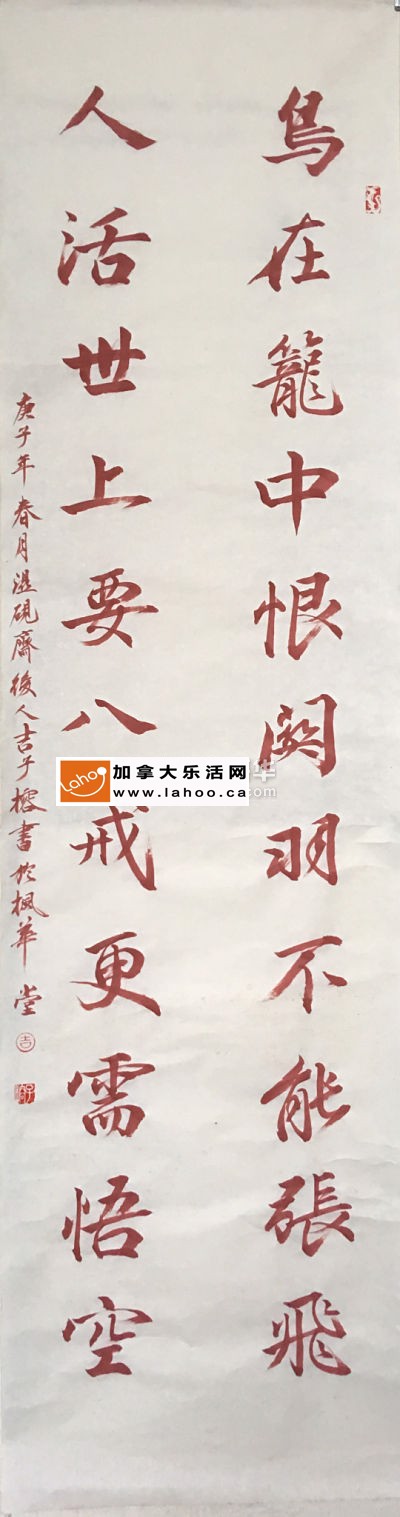 鳥在籠中恨関羽不能張飛
人活世上要八戒更需悟空
庚子年春月湿硯齋後人吉子榕書於楓華堂
吉
Lahoo
加拿大乐活网
www.lahoo.ca
华
om